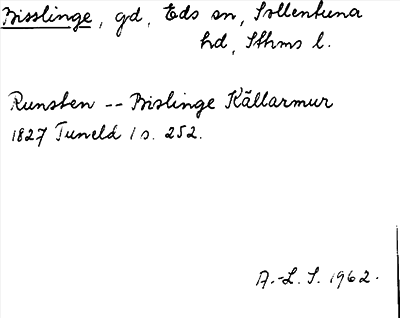 Bisslinge, gd, Eds sn, Sollentuna
hd, Sthms l.
Runsten -- Bislinge Källarmur
1827 Tuneld 1 s. 252.
A.-L. S. 1962.